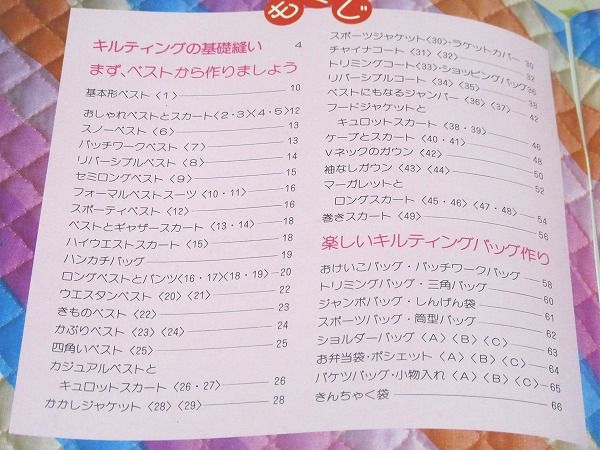 もくじ
キルティングの基礎縫い 4
まず、ベストから作りましょう
基本形ベスト〈1〉 10
おしゃれベストとスカート〈2・3〉〈4・5〉 12
スノーベスト〈6〉 13
パッチワークベスト〈7〉 13
リバーシブルベスト〈8〉 14
セミロングベスト〈9〉 15
フォーマルベストスーツ〈10・11〉 16
スポーティベスト〈12〉 16
ベストとギャザースカート〈13・14〉 18
ハイウエストスカート〈15〉 18
ハンカチバッグ 19
ロングベストとパンツ〈16・17〉〈18・19〉 20
ウエスタンベスト〈20〉〈21〉 22
きものベスト〈22〉 23
かぶりベスト〈23〉〈24〉 24
四角いベスト〈25〉 25
カジュアルベストと
キュロットスカート〈26・27〉 26
かかしジャケット〈28〉〈29〉 28
スポーツジャケット〈30〉・ラケットカバー 30
チャイナコート〈31〉〈32〉 32
トリミングコート〈33〉・ショッピングバッグ 36
リバーシブルコート〈34〉〈35〉 38
ベストにもなるジャンパー〈36〉〈37〉 42
フードジャケットと
キュロットスカート〈38・39〉 46
ケープとスカート〈40・41〉 48
Vネックのガウン〈42〉 50
袖なしガウン〈43〉〈44〉 52
マーガレットと
ロングスカート〈45・46〉〈47・48〉 54
巻きスカート〈49〉 56
楽しいキルティングバッグ作り
おけいこバッグ・パッチワークバッグ 58
トリミングバッグ・三角バッグ 60
ジャンボバッグ・しんげん袋 61
スポーツバッグ・筒型バッグ 62
ショルダーバッグ〈A〉〈B〉〈C〉 63
お弁当袋・ポシェット〈A〉〈B〉〈C〉 64
バケツバッグ・小物入れ〈A〉〈B〉〈C〉 65
きんちゃく袋 66